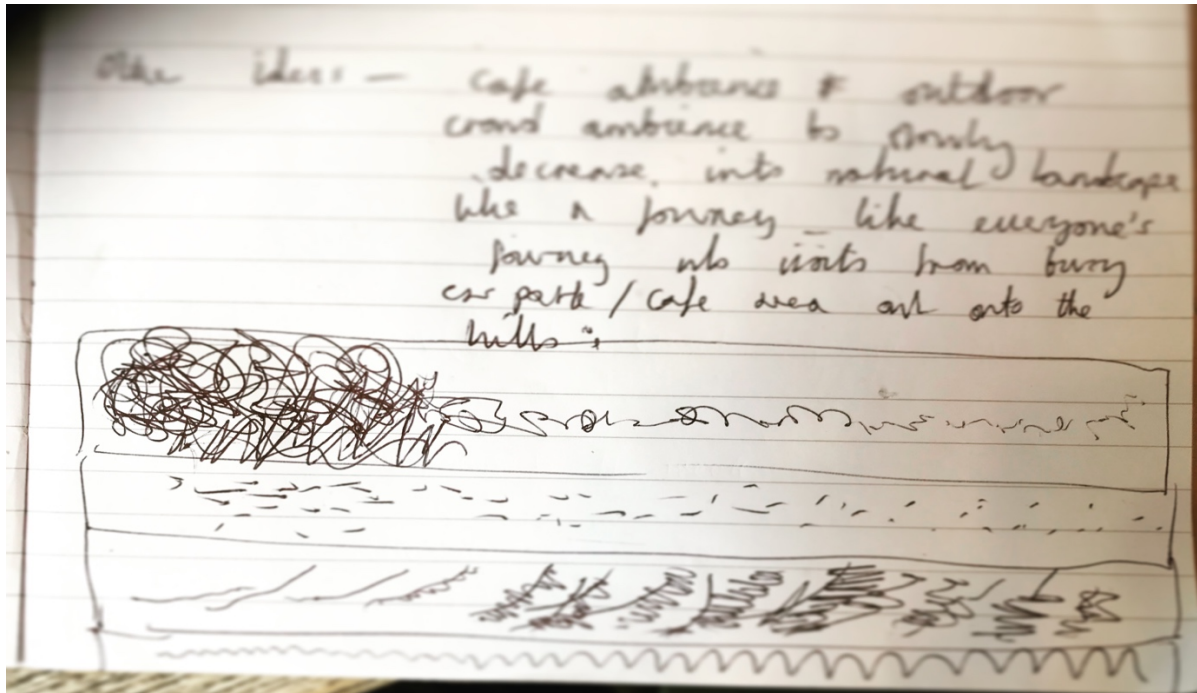 Other ideas — cafe ambience & outdoor
crowd ambience to slowly
decrease into natural landscape
like a journey – like everyone's
journey who visits from busy
car park / cafe area out onto the
hills